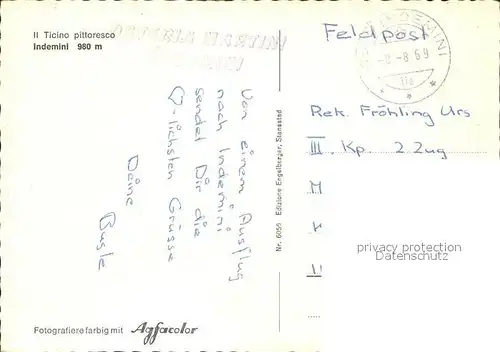 Il Ticino pittoresco
Indemini 980 m
OSTERIA MARTINI
INDEMINI
Feldpost
INDEMINI
-8-8 69
Von einem Ausflug
nach Indemini
sendet Dir die
♡-lichsten Grüsse
Deine
Rek. Fröhling Urs
III. Kp. 2 Zug
M
Nr. 6055 Edizione Engelberger, Stansstad
privacy protection
Datenschutz
Fotografiere farbig mit Agfacolor